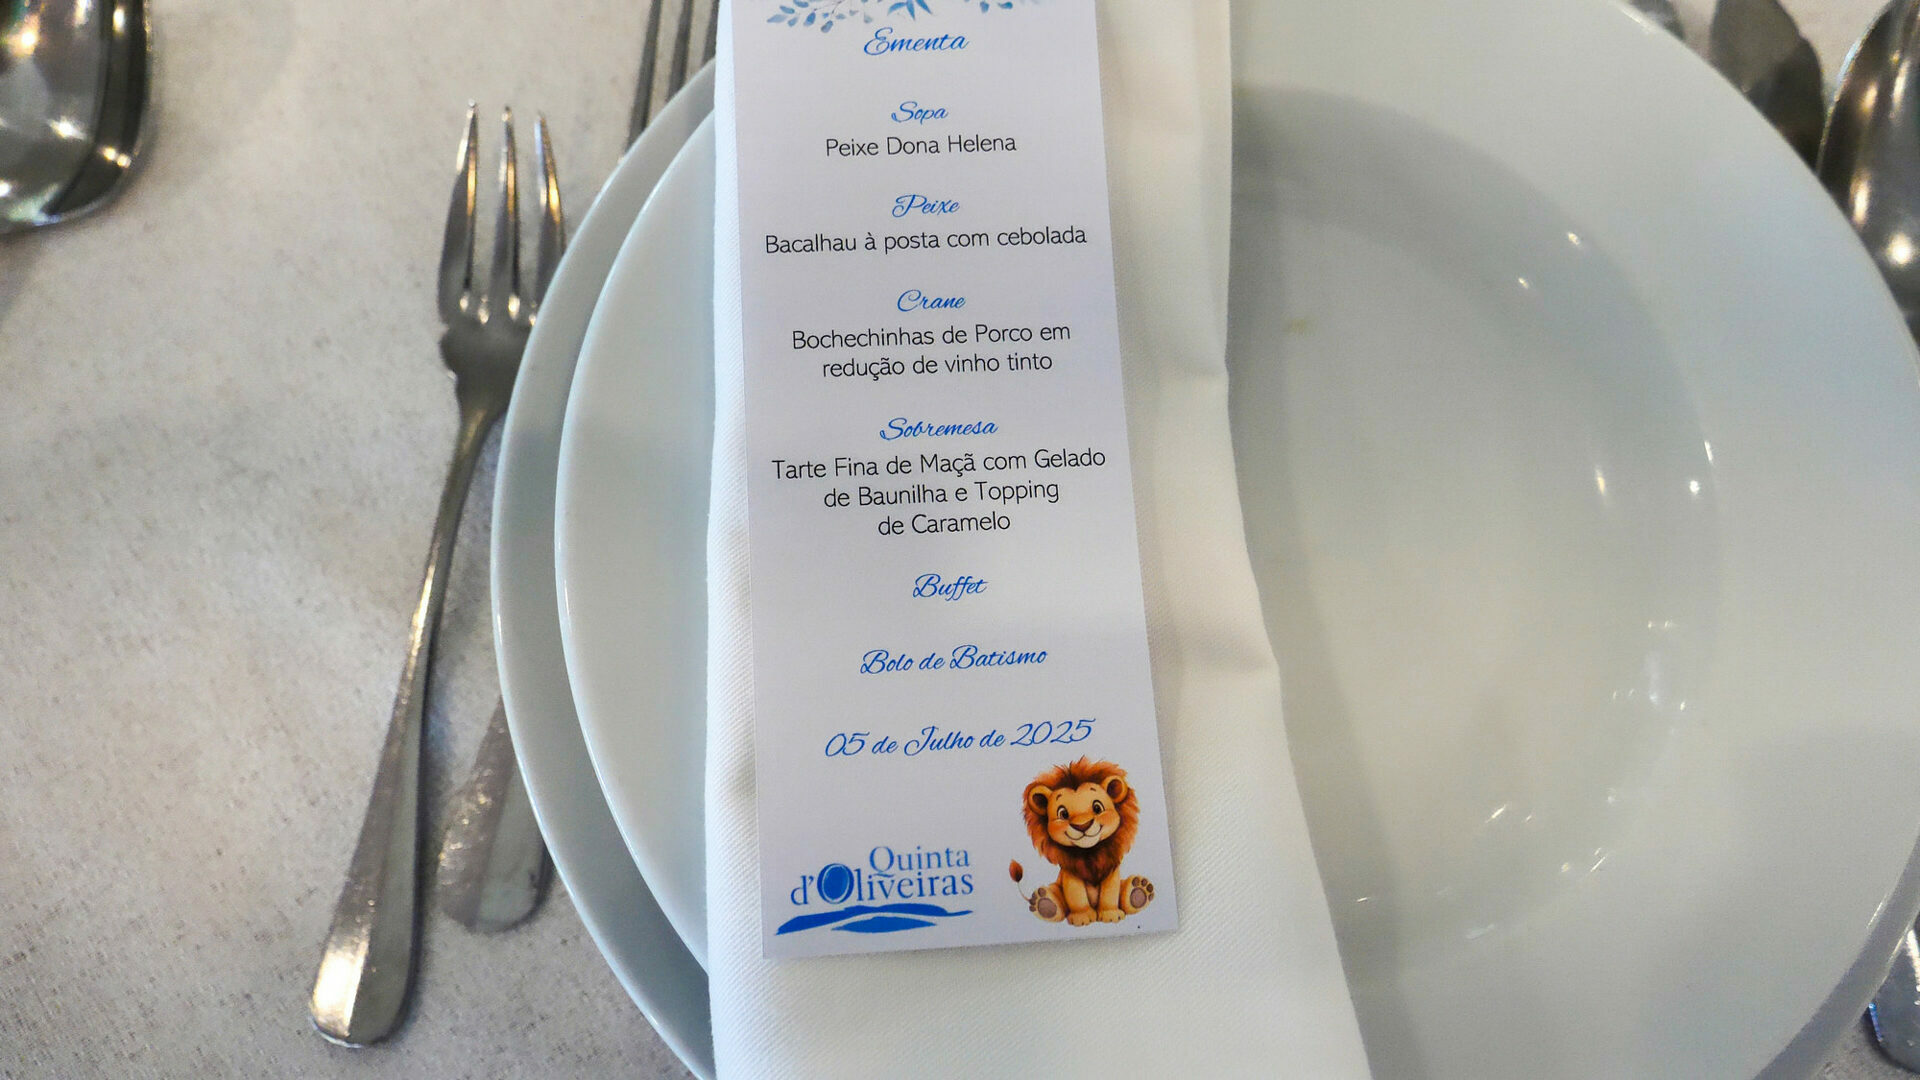 Ementa
Sopa
Peixe Dona Helena
Peixe
Bacalhau à posta com cebolada
Crane
Bochechinhas de Porco em
redução de vinho tinto
Sobremesa
Tarte Fina de Maçã com Gelado
de Baunilha e Topping
de Caramelo
Buffet
Bolo de Batismo
05 de Julho de 2025
Quinta
d'Oliveiras